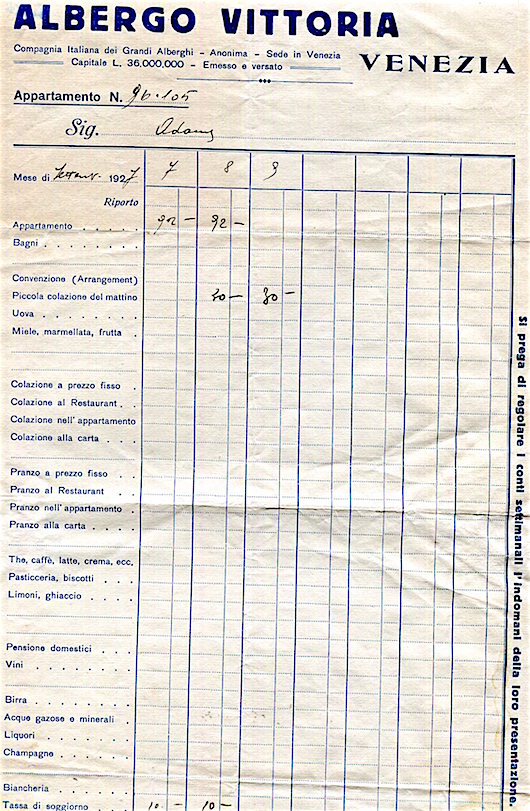 ALBERGO VITTORIA
Compagnia Italiana dei Grandi Alberghi - Anonima - Sede in Venezia
Capitale L. 36,000,000 - Emesso e versato
VENEZIA
Appartamento N. 96-105
Sig.
Mese di 1927 7 8 9
Riporto
Appartamento . . . . . 92 - 92 -
Bagni . . . . . . . . .
Convenzione (Arrangement)
Piccola colazione del mattino 30 - 30 -
Uova . . . . . . . . .
Miele, marmellata, frutta .
Colazione a prezzo fisso .
Colazione al Restaurant . .
Colazione nell'appartamento
Colazione alla carta . . .
Pranzo a prezzo fisso . . .
Pranzo al Restaurant . . .
Pranzo nell'appartamento .
Pranzo alla carta . . . . .
The, caffè, latte, crema, ecc.
Pasticceria, biscotti . . . .
Limoni, ghiaccio . . . . .
Pensione domestici . . . .
Vini . . . . . . . . .
Birra . . . . . . . . .
Acque gazose e minerali .
Liquori . . . . . . . .
Champagne . . . . . . .
Biancheria . . . . . . .
Tassa di soggiorno . . . . 10 - 10 -
Si prega di regolare i conti settimanali l'indomani della loro presentazione.